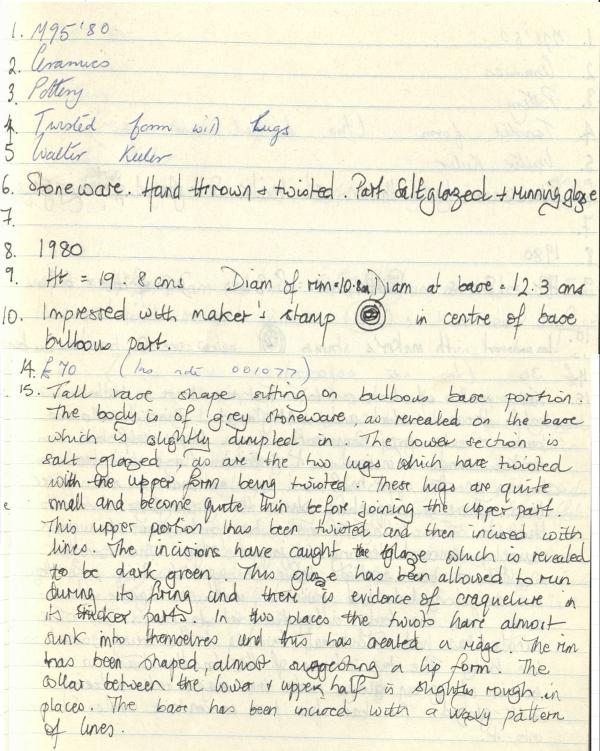 1. M95'80
2. Ceramics
3. Pottery
4. Twisted form with lugs
5 Walter Keeler
6. Stoneware. Hand thrown + twisted. Part Saltglazed + running glaze
7.
8. 1980
9. Ht = 19.8 cms Diam of rim=10.8cm Diam at base = 12.3 cms
10. Impressed with maker's stamp in centre of base
bulbous part.
14. £70 (Ins. note 001077)
15. Tall vase shape sitting on bulbous base portion.
The body is of grey stoneware, as revealed on the base
which is slightly dimpled in. The lower section is
salt-glazed, as are the two lugs which have twisted
with the upper form being twisted. These lugs are quite
small and become quite thin before joining the upper part.
This upper portion has been twisted and then incised with
lines. The incisions have caught the glaze which is revealed
to be dark green. This glaze has been allowed to run
during its firing and there is evidence of craquelure in
its thicker parts. In two places the twists have almost
sunk into themselves and this has created a ridge. The rim
has been shaped, almost suggesting a lip form. The
collar between the lower + upper half is slightly rough in
places. The base has been incised with a wavy pattern
of lines.